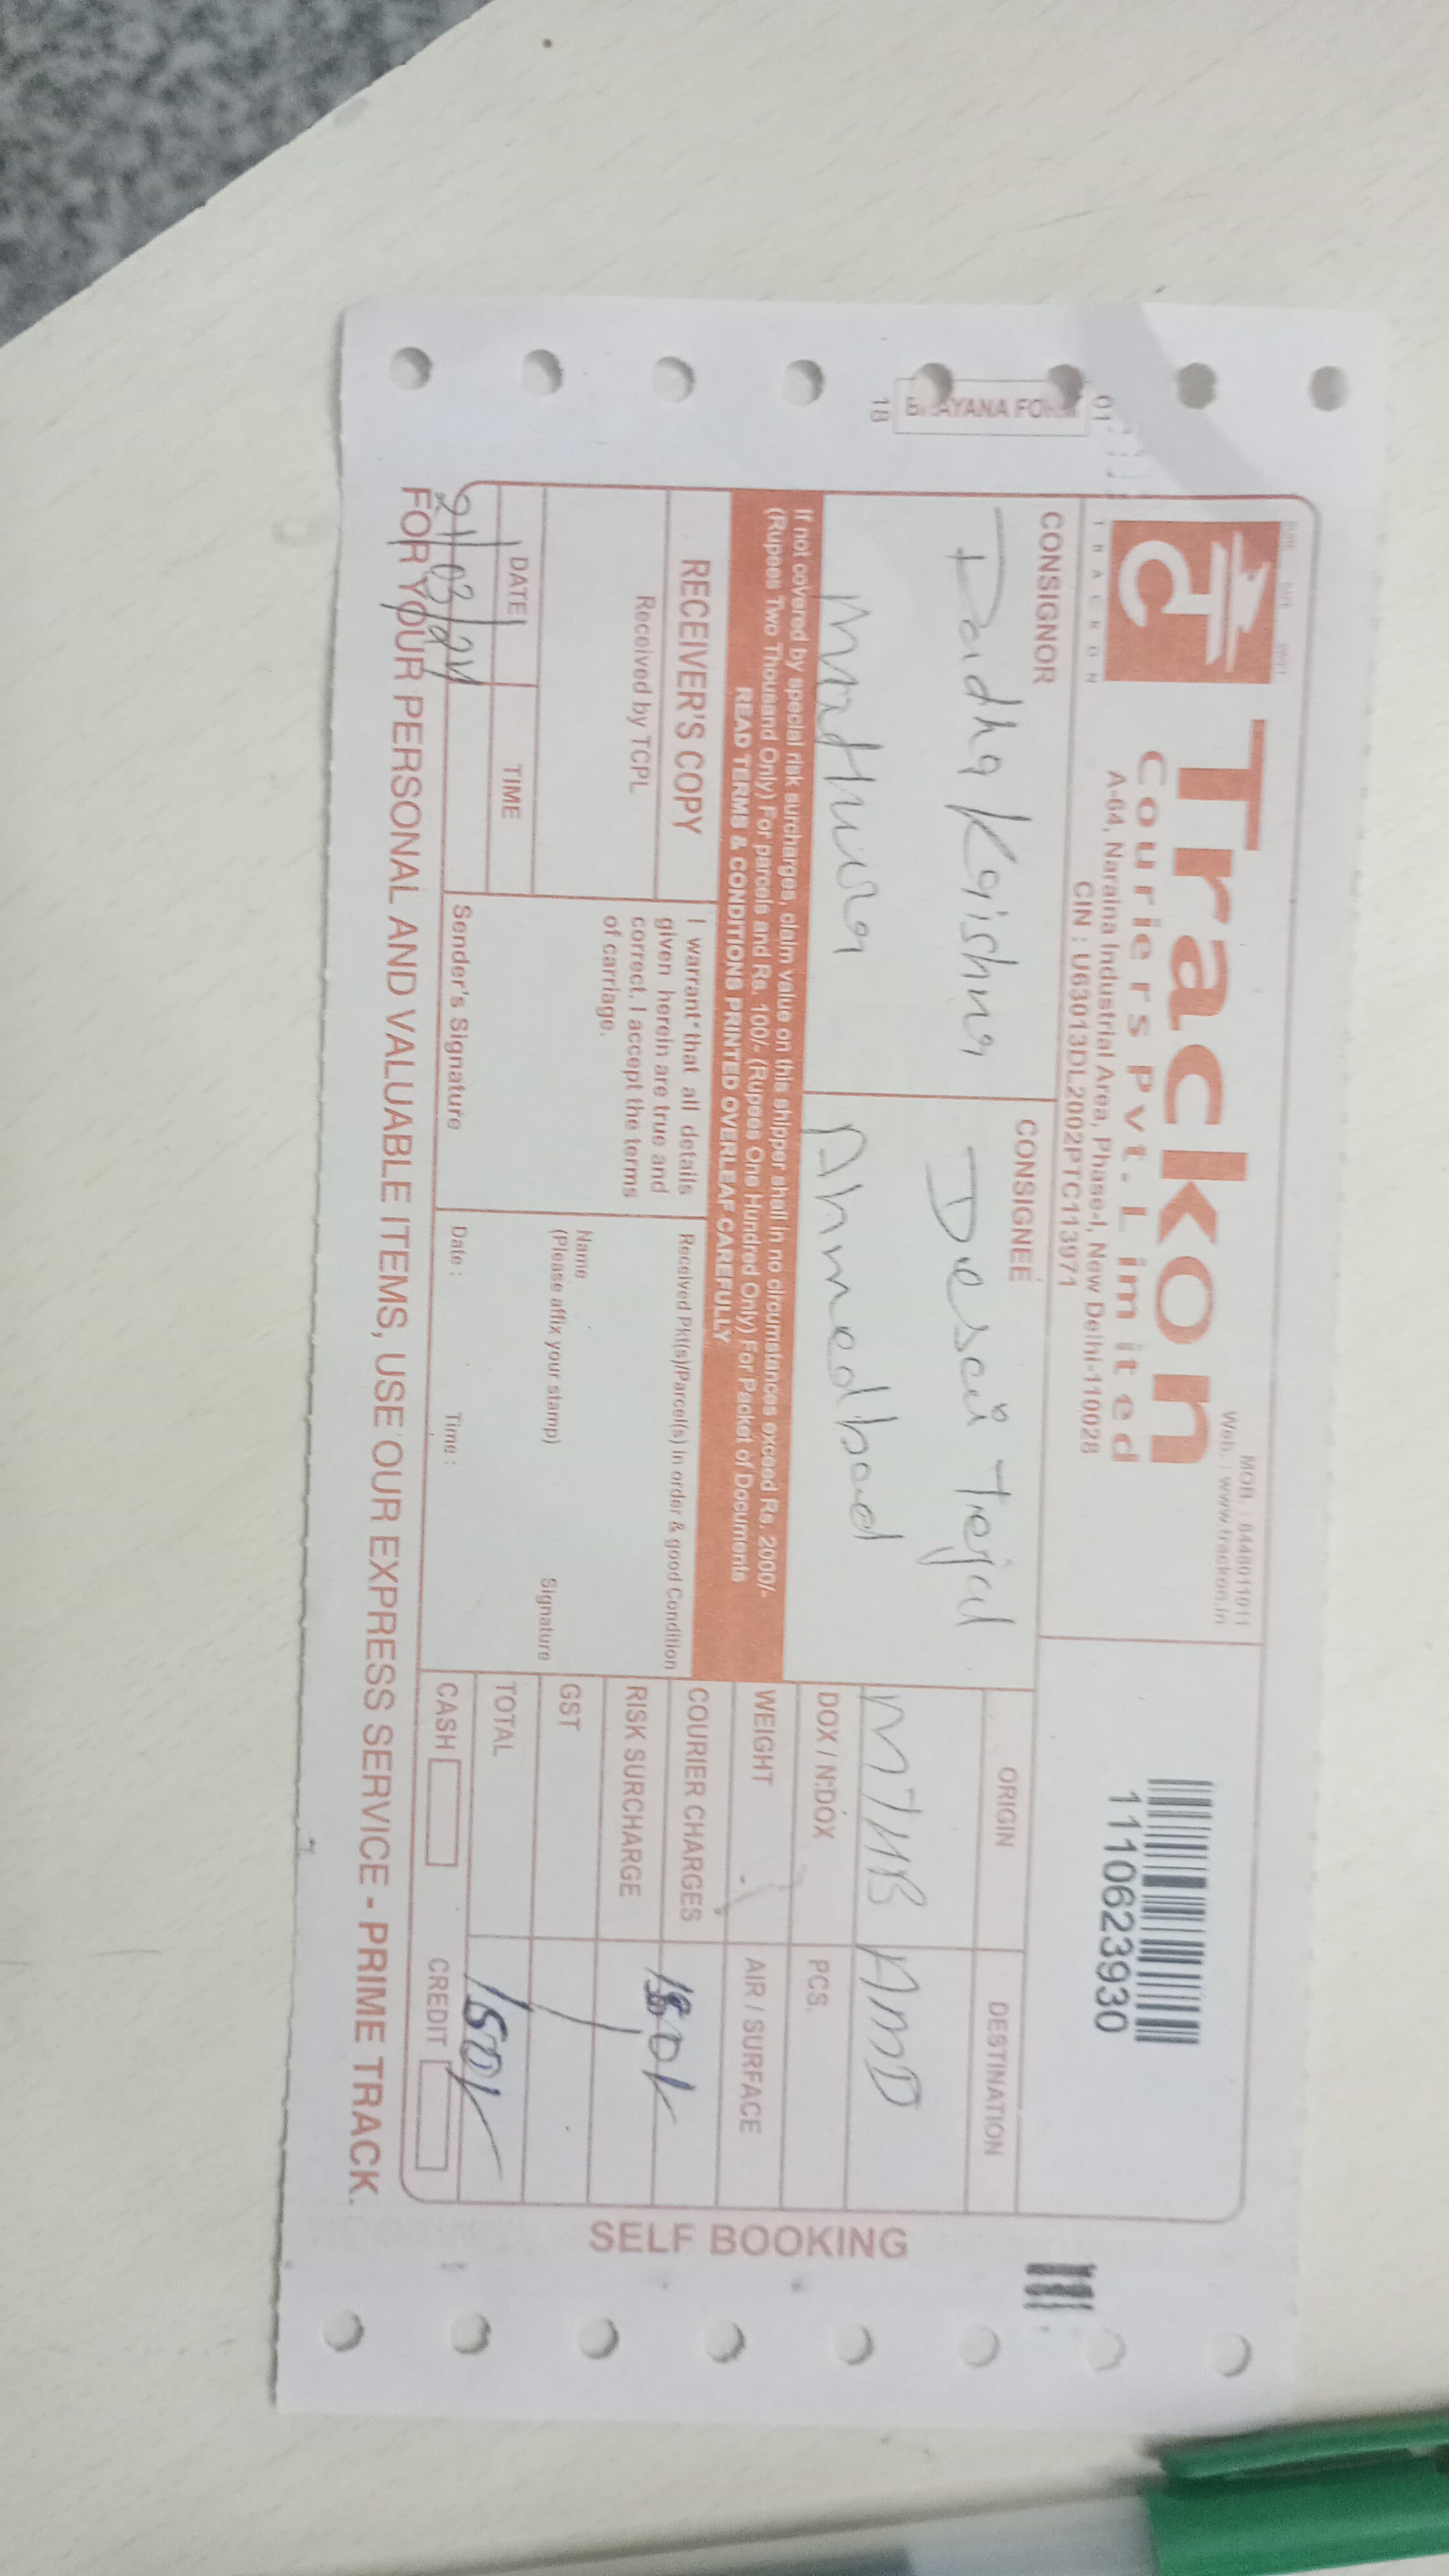 Trackon
Couriers Pvt. Limited
A-64, Naraina Industrial Area, Phase-I, New Delhi-110028
CIN : U63013DL2002PTC113971
MOB. : 8448011011
Web. : www.trackon.in
TRACKON
1110623930
CONSIGNOR
Radha Krishna
Mathura
CONSIGNEE
Desai Tejal
Ahmedbad
ORIGIN
DESTINATION
MTHR
AMD
DOX / N.DOX
PCS.
WEIGHT
AIR / SURFACE
COURIER CHARGES
150/-
RISK SURCHARGE
GST
TOTAL
150/-
CASH
CREDIT
If not covered by special risk surcharges, claim value on this shipper shall in no circumstances exceed Rs. 2000/-
(Rupees Two Thousand Only) For parcels and Rs. 100/- (Rupees One Hundred Only) For Packet of Documents
READ TERMS & CONDITIONS PRINTED OVERLEAF CAREFULLY
RECEIVER'S COPY
Received by TCPL
DATE
TIME
21/03/24
I warrant that all details
given herein are true and
correct. I accept the terms
of carriage.
Sender's Signature
Received Pkt(s)/Parcel(s) in order & good Condition
Name
(Please affix your stamp)
Signature
Date :
Time :
FOR YOUR PERSONAL AND VALUABLE ITEMS, USE OUR EXPRESS SERVICE - PRIME TRACK.
SELF BOOKING
18
01